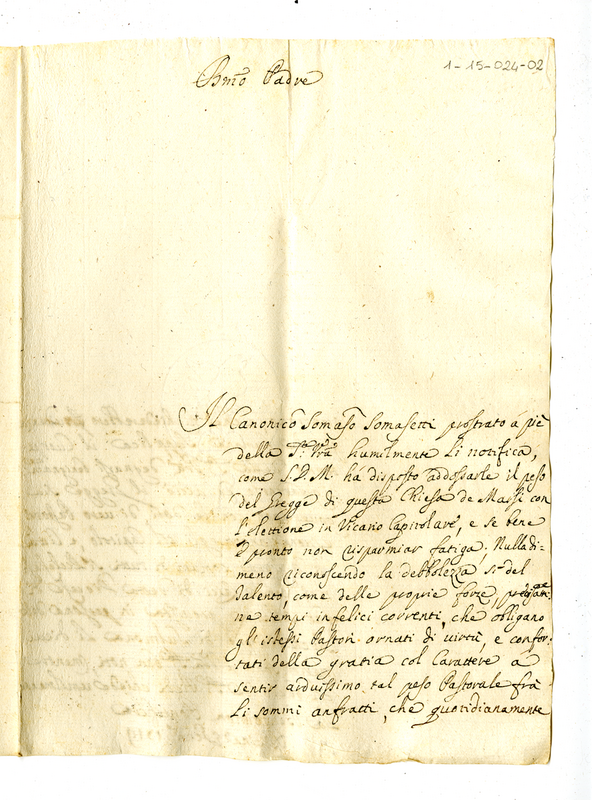 1-15-024-02
Bmo Padre
Il Canonico Tomaso Tomasetti prostrato á piè
della Stà Vrã humilmente li notifica,
come S.D.M. ha disposto addossarle il peso
del Gregge di questa Chiesa de Marsi con
l'elettione in Vicario Capitolare, e se bene
è pronto non risparmiar fatiga. Nulladi-
meno riconoscendo la debbolezza sì del
talento, come delle proprie forze,
ne tempi infelici correnti, che obligano
gl'istessi Pastori ornati di virtù, e confor-
tati della gratia col Carattere a
sentir arduissimo tal peso Pastorale frà
li sommi anfratti, che quotidianamente